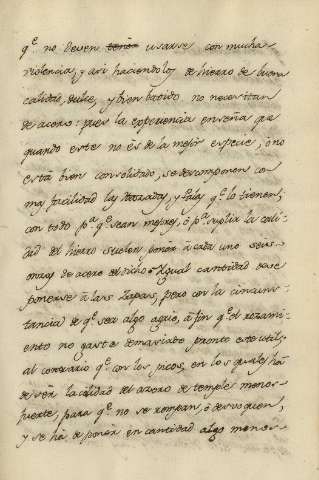 q.e no deven usarse con mucha
violencia, y asi haciendolos de hierro de buena
calidad, dulce, y bien batido no necesitan
de acero: pues la experiencia enseña que
quando este no es de la mejor especie, ó no
está bien consolidado, se descomponen con
mas facilidad las Azadas, y Palas q.e lo tienen;
con todo p.a q.e sean mejores, ó p.a suplir la cali-
dad del hierro suelen poner à cada uno seis
onzas de acero del dicho. Igual cantidad deve
ponerse à las Zapas, pero con la circuns-
tancia de q.e sea algo agrio, à fin q.e el rozami-
ento no gaste demasiado pronto este util;
al contrario q.e con los picos, en los quales há
de ser la calidad del azero de temple menos
fuerte, para q.e no se rompan, ó desvoquen,
y se há de poner en cantidad algo menos